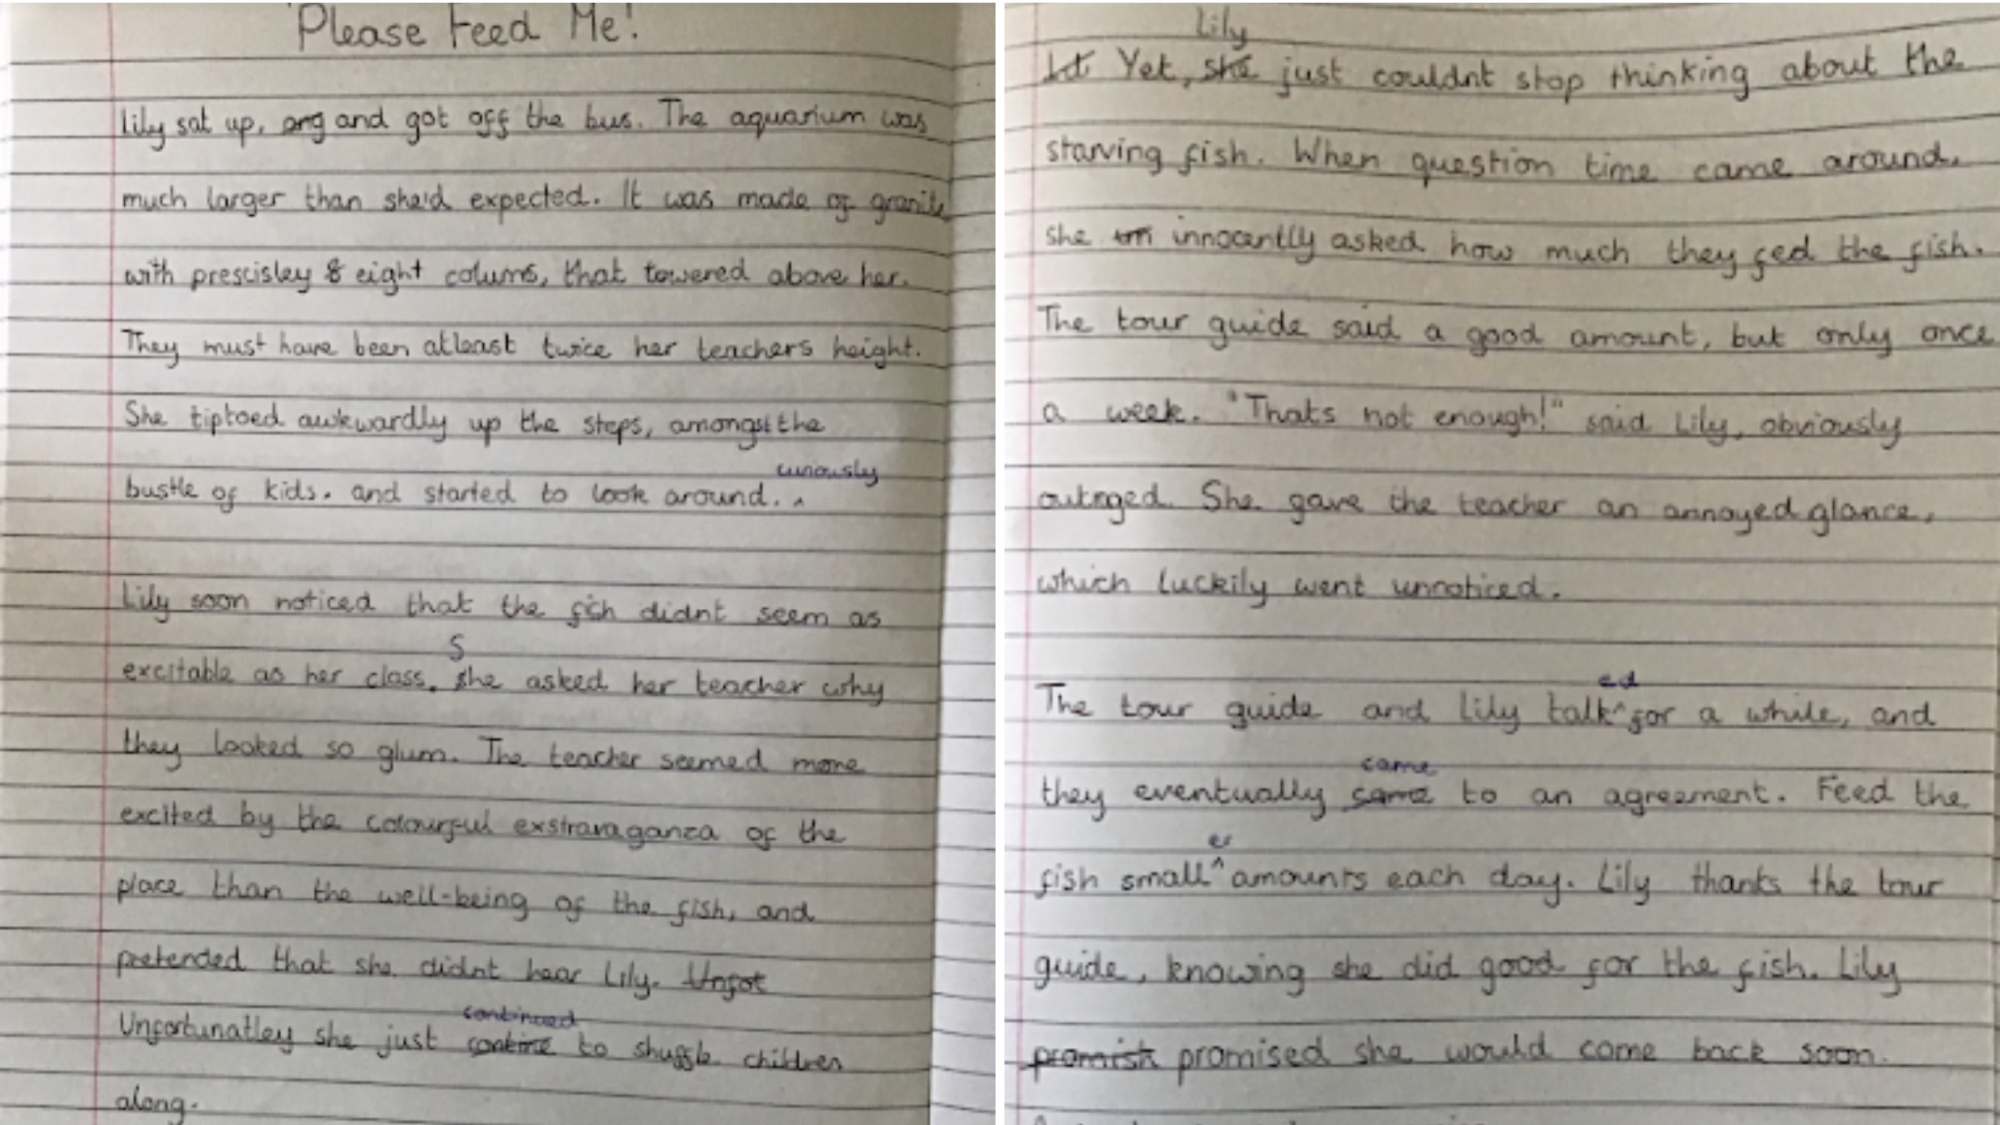 Please Feed Me!
Lily sat up, and got off the bus. The aquarium was
much larger than she'd expected. It was made of granite
with prescisley eight colums, that towered above her.
They must have been atleast twice her teachers height.
She tiptoed awkwardly up the steps, amongst the
bustle of kids. and started to look around. curiously
Lily soon noticed that the fish didnt seem as
excitable as her class. She asked her teacher why
they looked so glum. The teacher seemed more
excited by the colourful exstravaganza of the
place than the well-being of the fish, and
pretended that she didnt hear Lily. Unfot
Unfortunatley she just continued to shuffle children
along.
Yet, Lily just couldnt stop thinking about the
starving fish. When question time came around,
she innocently asked how much they fed the fish.
The tour guide said a good amount, but only once
a week. "Thats not enough!" said Lily, obviously
outraged. She gave the teacher an annoyed glance,
which luckily went unnoticed.
The tour guide and Lily talked for a while, and
they eventually came to an agreement. Feed the
fish smaller amounts each day. Lily thanks the tour
guide, knowing she did good for the fish. Lily
promish promised she would come back soon.